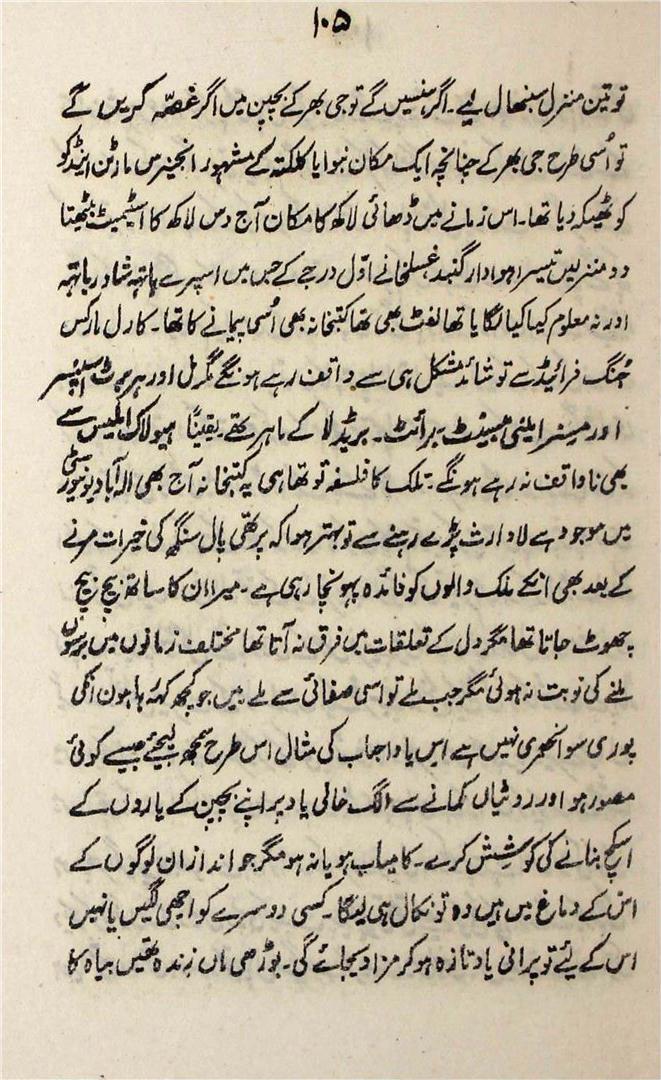 ۱۰۵
تو تین منزل سنبھال لیے ۔ اگر ہنسیں گے تو جی بھر کے بچپن میں اگر غصّہ کریں گے
تو اُسی طرح جی بھر کے چنانچہ ایک مکان بنوایا کلکتہ کے مشہور انجینرس مارٹن اینڈ کو
کو ٹھیکہ دیا تھا ۔ اس زمانے میں ڈھائی لاکھ کا مکان آج دس لاکھ کا اسٹیمیٹ بیٹھیتا
دو منزلیں تیسرا ہوادار گنبد غسلخانے اوّل درجے کے جس میں اسپرے باتھ شاور باتھ
اور نہ معلوم کیا کیا لگایا تھا لفٹ بھی تھا کتبخانہ بھی اُسی پیمانے کا تھا ۔ کارل مارکس
جُنگ فرائیڈ سے تو شائد مشکل ہی سے واقف رہے ہونگے مگر مل اور ہربرٹ اسپنسر
اور مسنر اینی بیسنٹ برائٹ ۔ بریڈ لا کے ماہر تھے ۔ یقینًا ہیولاک ایلیس سے
بھی ناواقف نہ رہے ہونگے ۔ تلک کا فلسفہ تو تھا ہی یہ کتبخانہ آج بھی الہ آباد یونیورسٹی
میں موجود ہے لاوارث پڑے رہنے سے تو بہتر ہوا کہ پرتھی پال سنگھ کی خیرات مرنے
کے بعد بھی انکے ملک والوں کو فائدہ پہونچا رہی ہے ۔ میرا ان کا ساتھ بیچ بیچ
چھوٹ جاتا تھا مگر دل کے تعلقات میں فرق نہ آتا تھا مختلف زمانوں میں برسوں
ملنے کی نوبت نہ ہوئی مگر جب ملے تو اسی صفائی سے ملے ہیں جو کچھ کہہ رہا ہوں انکی
پوری سوانحمری نہیں ہے ایں یا واحباب کی مثال اس طرح سمجھ لیجئے جیسے کوئی
مصور ہو اور روٹیاں کمانے سے الگ خالی یاد پر اپنے بچپن کے یاروں کے
اسکچ بنانے کی کوشِش کرے ۔ کامیاب ہو یا نہ ہو مگر جو انداز ان لوگوں کے
اس کے دماغ میں ہیں وہ تو نکال ہی لیگا ۔ کسی دوسرے کو اچھی لگیں یا نہیں
اس کے لئے تو پرانی یاد تازہ ہو کر مزا دیجائے گی ۔ بوڑھی ماں زندہ تھیں بیاہ کا